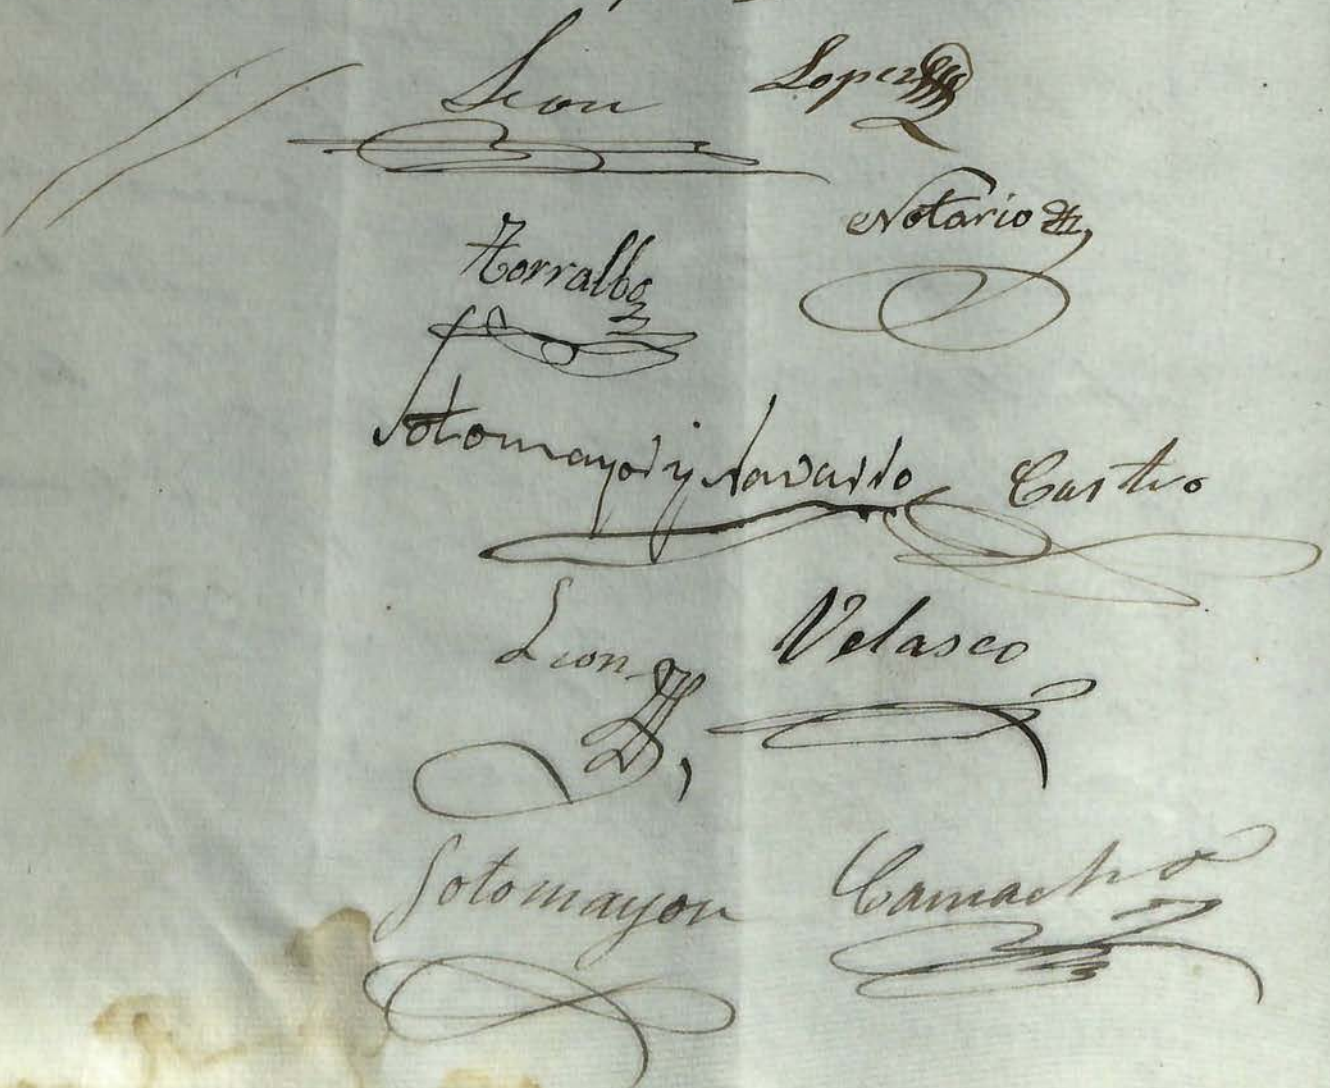 Leon Lopez
Notario
Torralbo
Sotomayor y Navarro Castro
Leon Velasco
Sotomayor Camacho